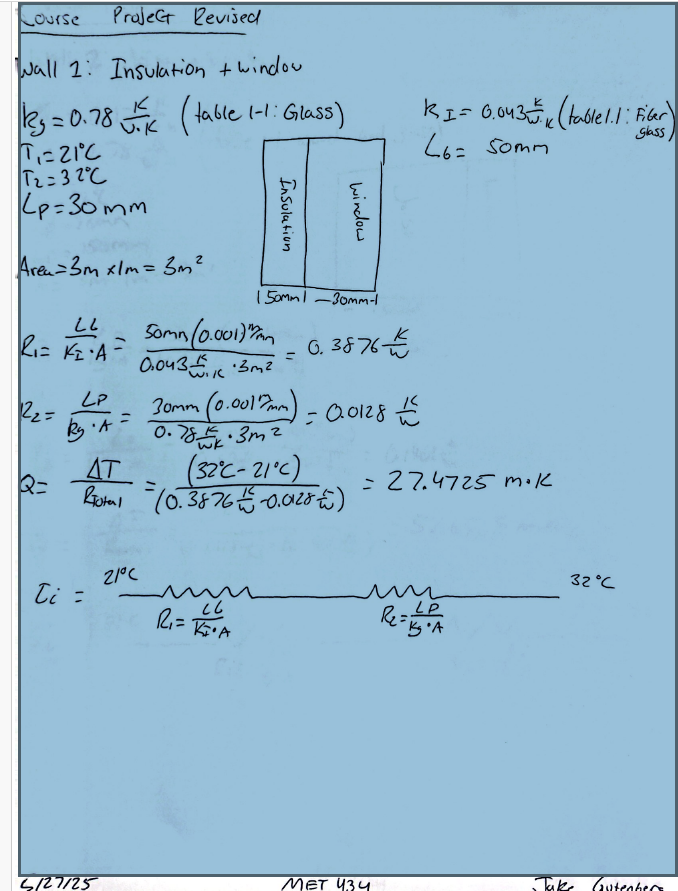 Course Project Revised
Wall 1: Insulation + window
kg = 0.78 K/W·K (table 1-1: Glass)
kI = 0.043 K/W·K (table 1.1: Fiber glass)
T1 = 21°C
L6 = 50mm
T2 = 32°C
LP = 30mm
Insulation
Window
Area = 3m x 1m = 3m²
150mm1 — 30mm-1
R1 = LL/KI·A = 50mm(0.001)m/mm / 0.043 K/W·K · 3m² = 0.3876 K/W
R2 = LP/kg·A = 30mm(0.001 m/mm) / 0.78 K/WK · 3m² = 0.0128 K/W
Q = ΔT/RTotal = (32°C - 21°C) / (0.3876 K/W - 0.0128 K/W) = 27.4725 m·K
21°C
32°C
Ti =
R1 = LL/KI·A
R2 = LP/Kg·A
5/27/25 MET 434 Jake Gutenberg